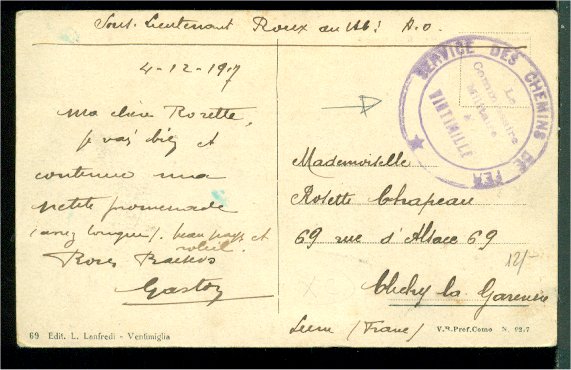 Sous-Lieutenant Roux au A.O.
4-12-1917
ma chère Rosette,
je vais bien et
continue ma
petite promenade
(assez longue). beau pays et
soleil.
Gaston
SERVICE DES CHEMINS DE FER
Le
Commissaire
Militaire
à
VINTIMILLE
Mademoiselle
Rosette Chapeau
69 rue d'Alsace 69
Clichy la Garenne
Seine (France)
12/-
69 Edit. L. Lanfredi - Ventimiglia
V.R.Pref.Como N. 92-7